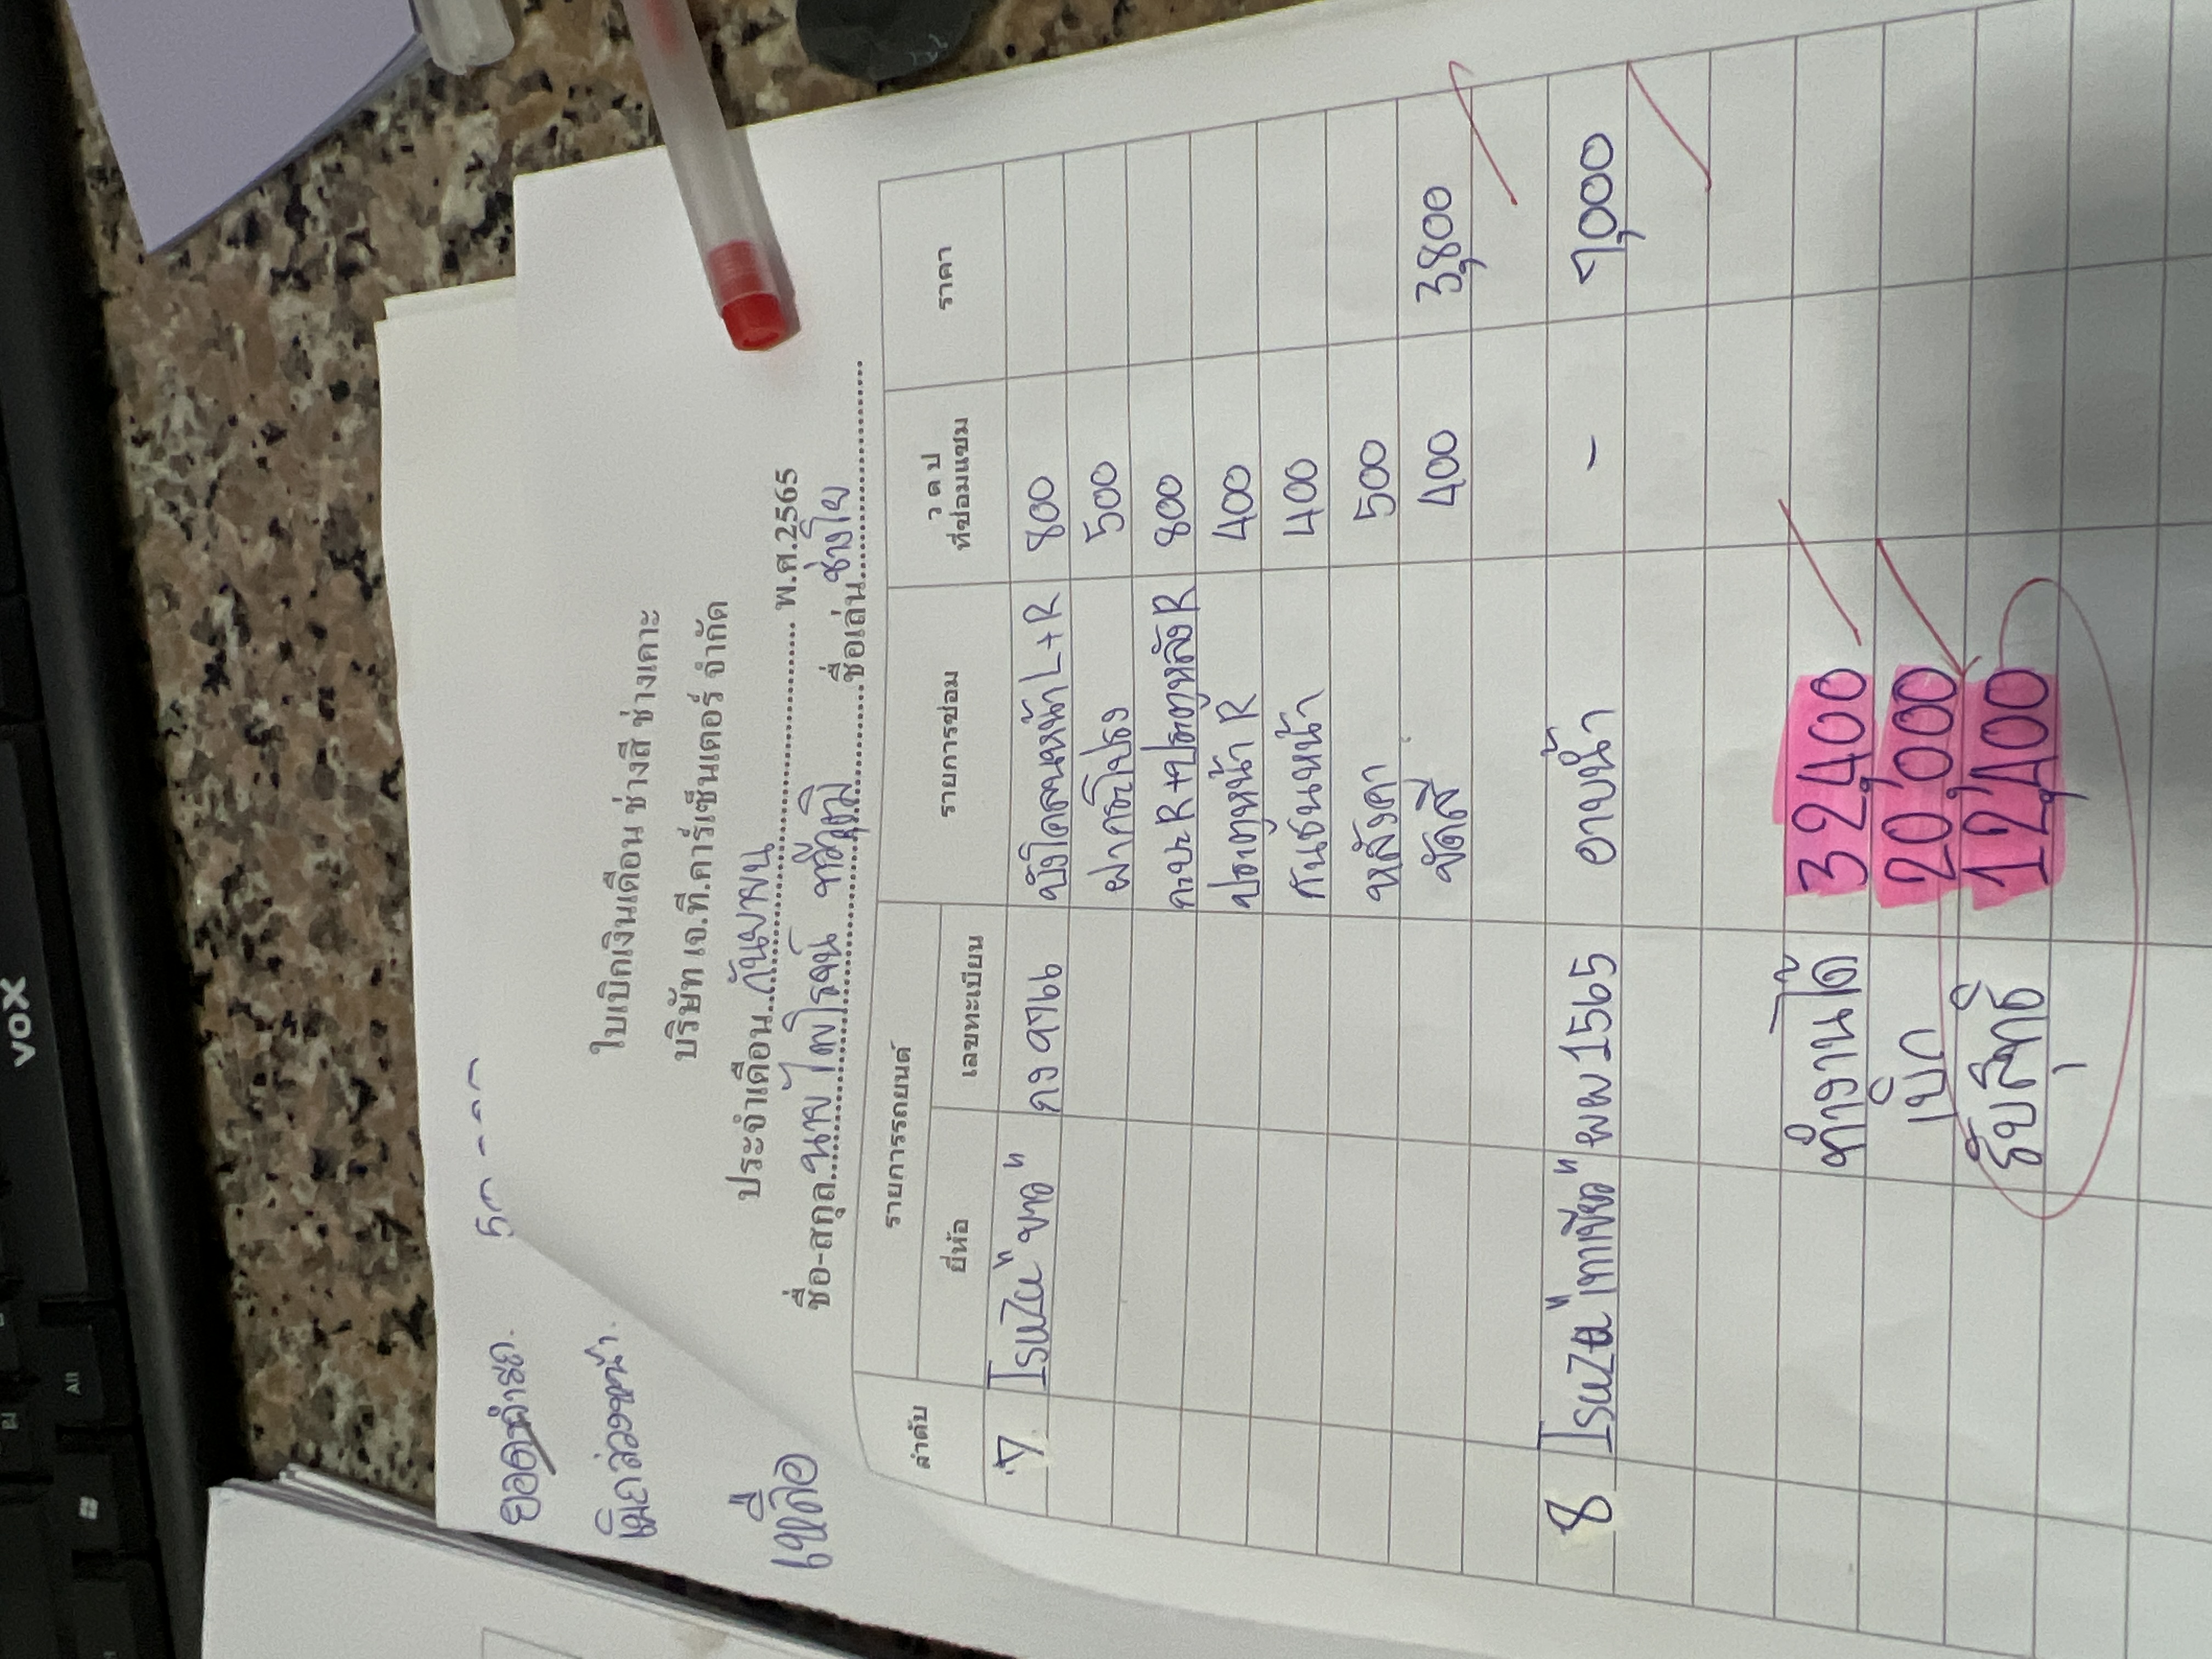 ยอดชำระ.
เบิกล่วงหน้า.
เหลือ
ใบเบิกเงินเดือน ช่างสี ช่างเคาะ
บริษัท เจ.ที.คาร์เซ็นเตอร์ จำกัด
ประจำเดือน..กันยายน........ พ.ศ.2565
ชื่อ-สกุล..นายไพโรจน์ ........ชื่อเล่น..ช่างโย........
ลำดับ รายการรถยนต์ รายการซ่อม ว ด ป ที่ซ่อมแซม ราคา
ยี่ห้อ เลขทะเบียน
7 Isuzu "ขาว" กง 9766 บังโคลนหน้า L+R 800
ฝากระโปรง 500
กะบะ R+ประตูหลัง R 800
ประตูหน้า R 400
กันชนหน้า 400
หลังคา 500
ขัดสี 400 3,800
8 Isuzu "เทาเขียว" ผผ 1565 อาบน้ำ - 7,000
ทำงานได้ 32,400
เบิก 20,000
รับสุทธิ 12,400
VOX
Alt